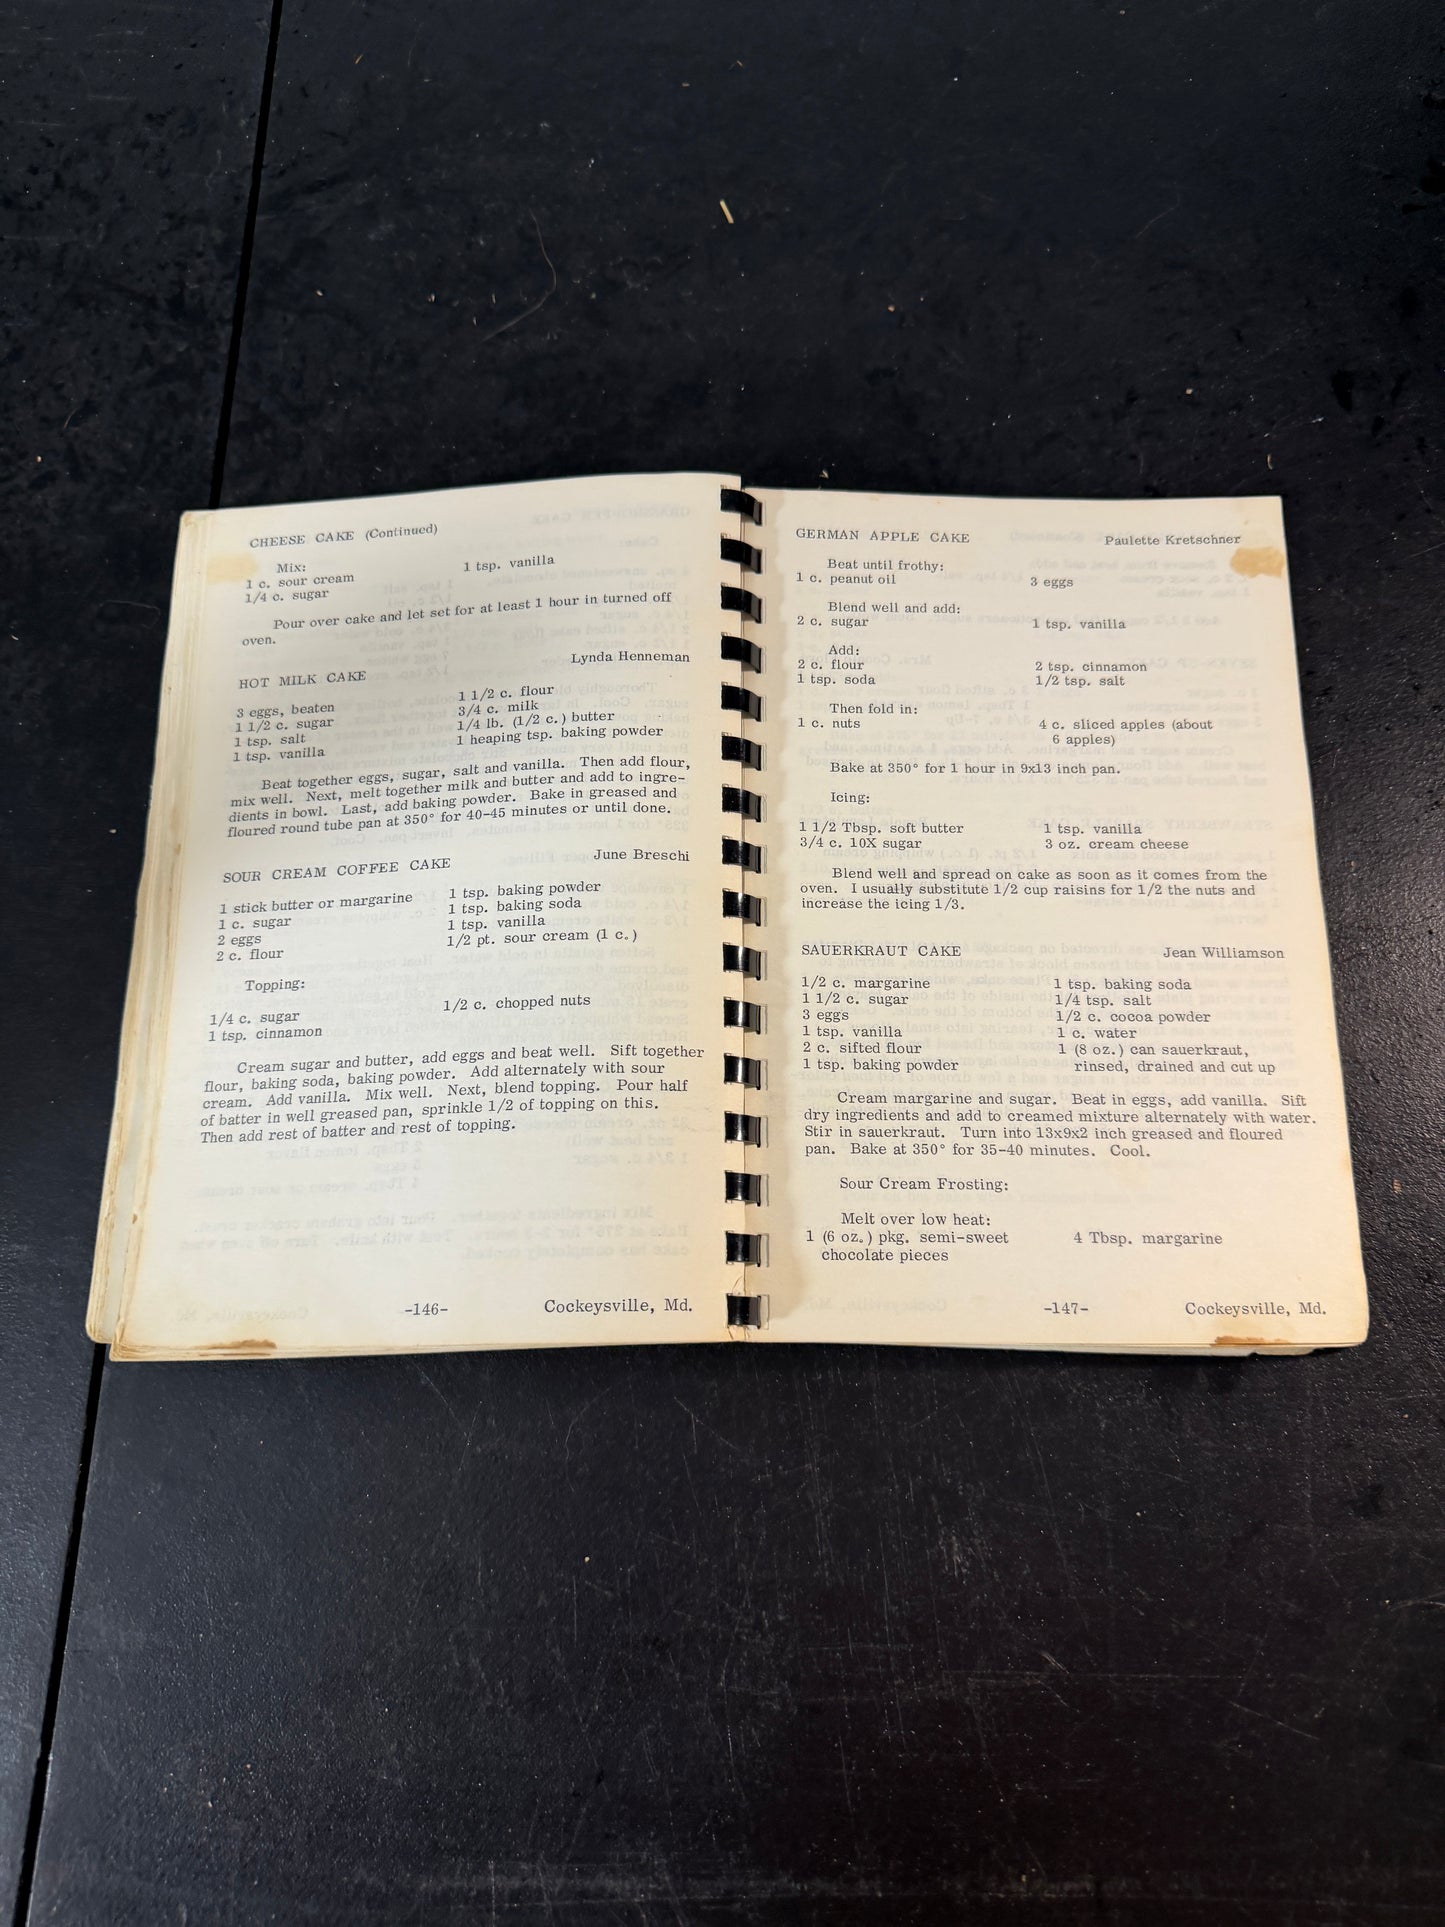 CHEESE CAKE (Continued)
Mix:
1 c. sour cream 1 tsp. vanilla
1/4 c. sugar
Pour over cake and let set for at least 1 hour in turned off
oven.
HOT MILK CAKE Lynda Henneman
3 eggs, beaten 1 1/2 c. flour
1 1/2 c. sugar 3/4 c. milk
1 tsp. salt 1/4 lb. (1/2 c.) butter
1 tsp. vanilla 1 heaping tsp. baking powder
Beat together eggs, sugar, salt and vanilla. Then add flour,
mix well. Next, melt together milk and butter and add to ingre-
dients in bowl. Last, add baking powder. Bake in greased and
floured round tube pan at 350° for 40-45 minutes or until done.
SOUR CREAM COFFEE CAKE June Breschi
1 stick butter or margarine 1 tsp. baking powder
1 c. sugar 1 tsp. baking soda
2 eggs 1 tsp. vanilla
2 c. flour 1/2 pt. sour cream (1 c.)
Topping:
1/4 c. sugar 1/2 c. chopped nuts
1 tsp. cinnamon
Cream sugar and butter, add eggs and beat well. Sift together
flour, baking soda, baking powder. Add alternately with sour
cream. Add vanilla. Mix well. Next, blend topping. Pour half
of batter in well greased pan, sprinkle 1/2 of topping on this.
Then add rest of batter and rest of topping.
-146- Cockeysville, Md.
GERMAN APPLE CAKE Paulette Kretschner
Beat until frothy:
1 c. peanut oil 3 eggs
Blend well and add:
2 c. sugar 1 tsp. vanilla
Add:
2 c. flour 2 tsp. cinnamon
1 tsp. soda 1/2 tsp. salt
Then fold in:
1 c. nuts 4 c. sliced apples (about
6 apples)
Bake at 350° for 1 hour in 9x13 inch pan.
Icing:
1 1/2 Tbsp. soft butter 1 tsp. vanilla
3/4 c. 10X sugar 3 oz. cream cheese
Blend well and spread on cake as soon as it comes from the
oven. I usually substitute 1/2 cup raisins for 1/2 the nuts and
increase the icing 1/3.
SAUERKRAUT CAKE Jean Williamson
1/2 c. margarine 1 tsp. baking soda
1 1/2 c. sugar 1/4 tsp. salt
3 eggs 1/2 c. cocoa powder
1 tsp. vanilla 1 c. water
2 c. sifted flour 1 (8 oz.) can sauerkraut,
1 tsp. baking powder rinsed, drained and cut up
Cream margarine and sugar. Beat in eggs, add vanilla. Sift
dry ingredients and add to creamed mixture alternately with water.
Stir in sauerkraut. Turn into 13x9x2 inch greased and floured
pan. Bake at 350° for 35-40 minutes. Cool.
Sour Cream Frosting:
Melt over low heat:
1 (6 oz.) pkg. semi-sweet 4 Tbsp. margarine
chocolate pieces
-147- Cockeysville, Md.